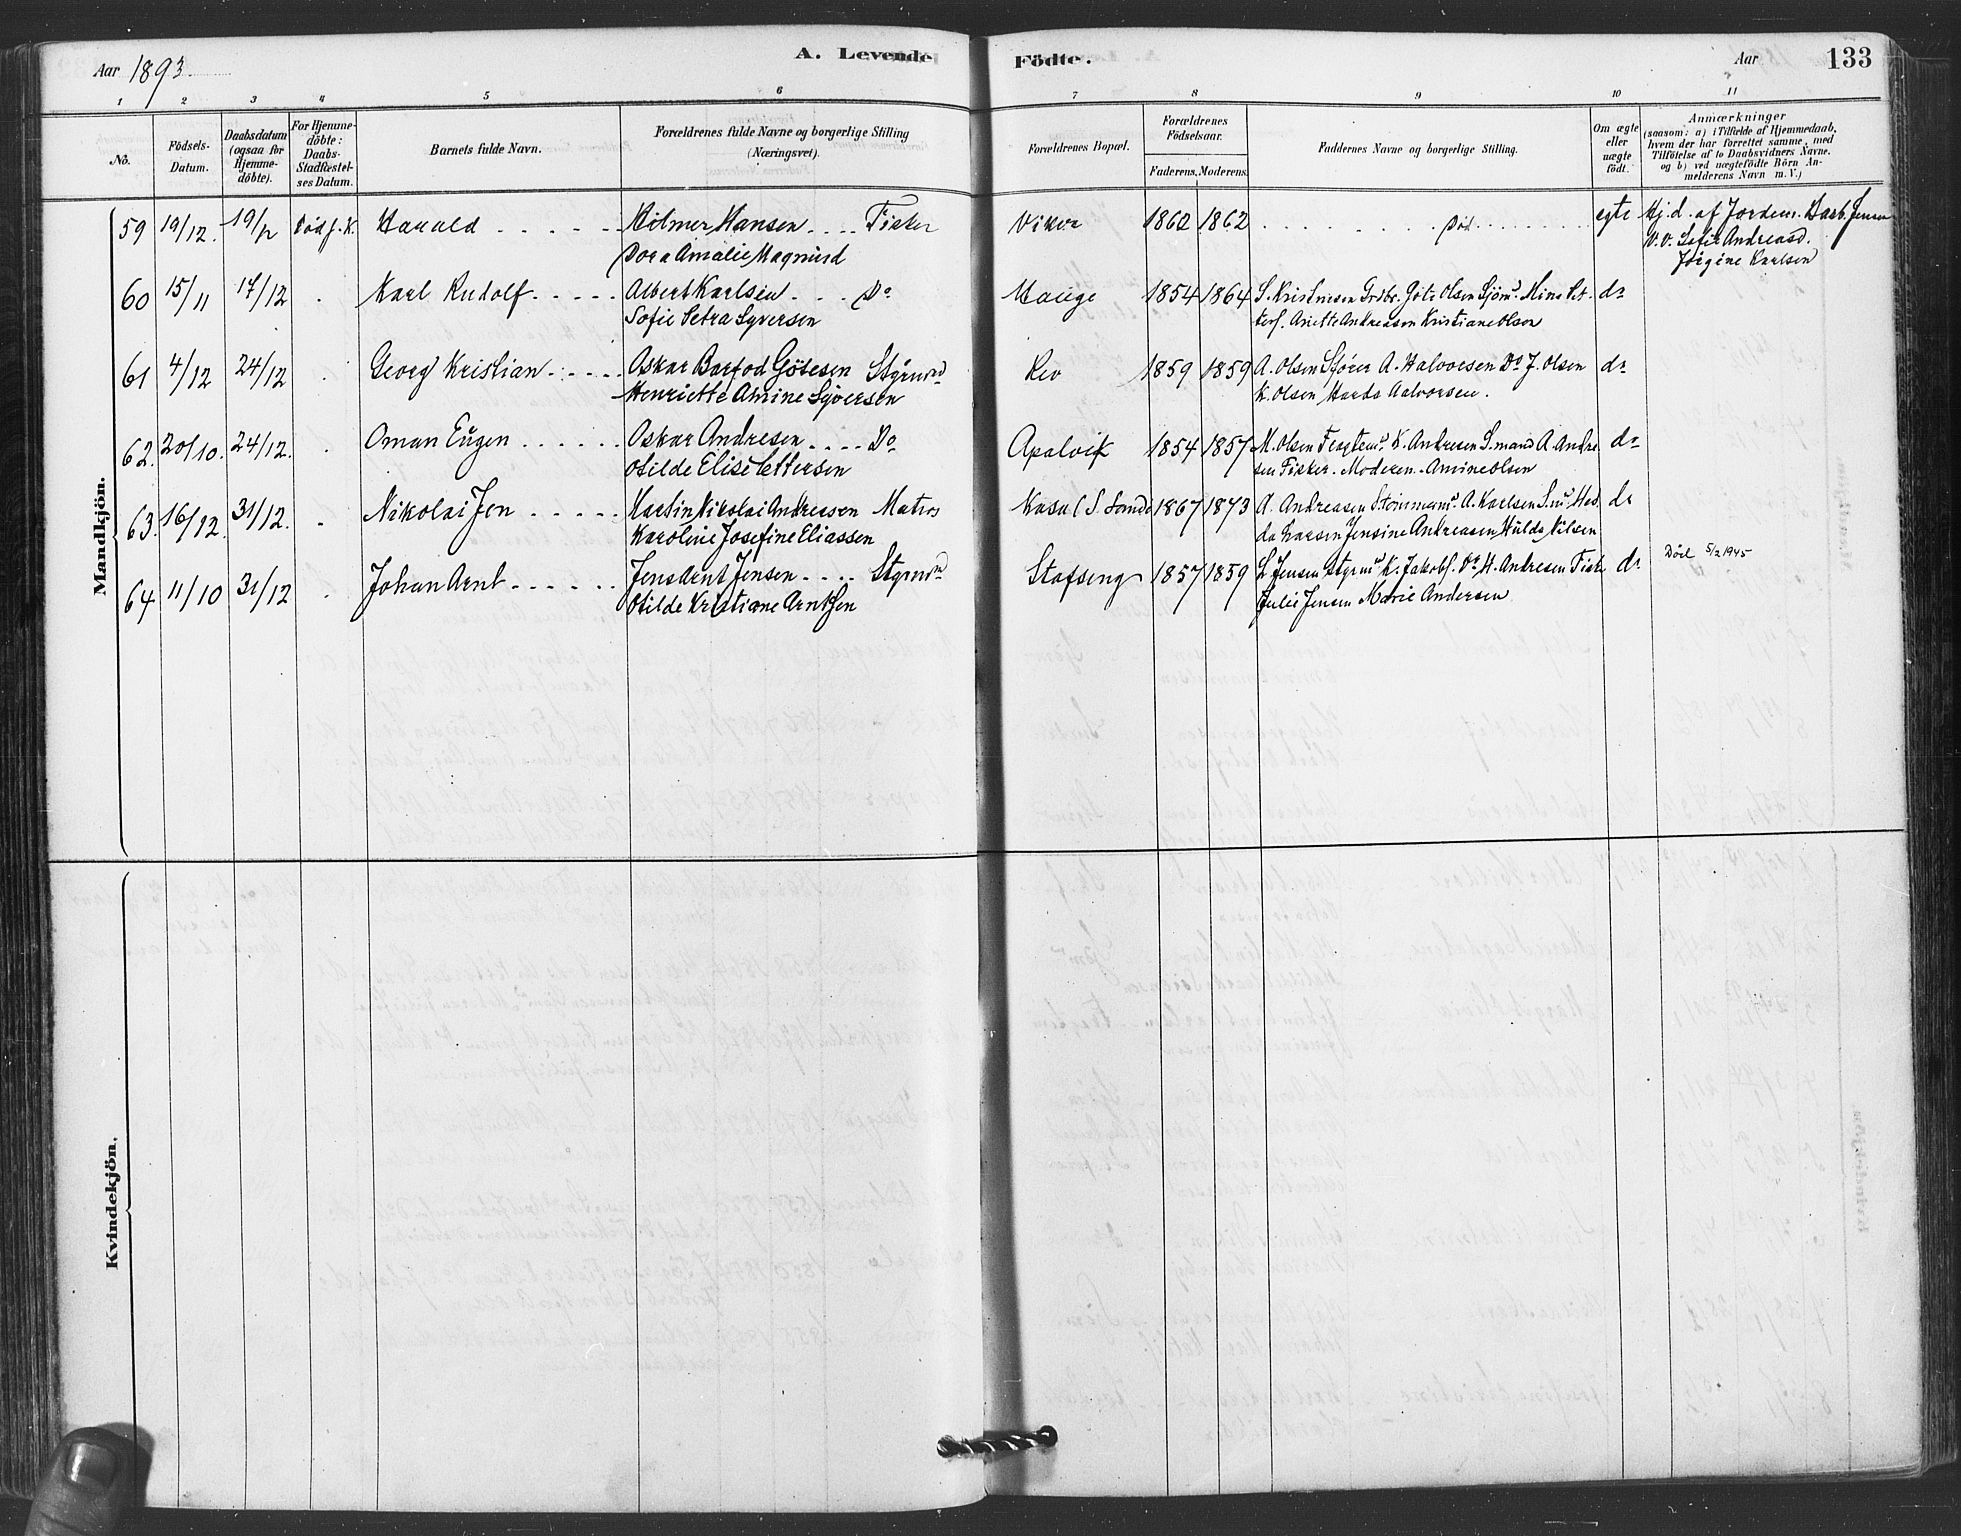 Aar 1893.
A. Levende
Födte.
Aar
133
1 2 3 4 5 6 7 8 9 10 11
No.
Födsels-
Datum.
Daabsdatum
(ogsaa for
Hjemme-
döbte).
For Hjemme-
döbte:
Daabs-
Stadfæstel-
ses Datum.
Barnets fulde Navn.
Forældrenes fulde Navne og borgerlige Stilling
(Næringsvei).
Forældrenes Bopæl.
Forældrenes
Födselsaar.
Faderens. Moderens.
Faddernes Navne og borgerlige Stilling.
Om ægte
eller
uægte
født.
Anmærkninger
(saasom: a) i Tilfælde af Hjemmedaab,
hvem der har forrettet samme, med
Tilföielse af to Daabsvidners Navne.
og b) ved uægtefödte Börn An-
melderens Navn m. V.)
Mandkjön.
59 19/12. 19/12 Død f. K. Harald Hilmer Hansen Fisker Viker 1862 1862 Død egte Hj. d. af Jordem. Barb. Jensen
Dora Amalie Magnusd V.V. Sofie Andreasd.
Jörgine Karlsen
60 15/11 17/12 Karl Rudolf Albert Karlsen Do Mauge 1854 1864 S. Kristnesen Grdbr. Göte Olsen Sjömd. Mina Pet- do
Sofie Petra Syversen tersf. Anette Andreasen Kristiane Olsen
61 4/12 24/12 Georg Kristian Oskar Barfod Götesen Styrmd Rev 1859 1859 A. Olsen A. Halvorsen Do J. Olsen do
Henriette Amine Syversen K. Olsen Harda Aalvorsen.
62. 20/10. 24/12. Oman Eugen Oskar Andresen Do Apalvik 1854 1857 M. Olsen K. Andresen S. mand A. Andre- do
Otilde Elise Pettersen sen Fisker. Moderen. Amine Olsen
63. 16/12. 31/12. Nikolai Jen Martin Nikolai Andreasen Matros Kasa (S. Sande 1867 1873 A. Andreasen Tömmermd. A. Karlsen S.md Hed- do
Karoline Josefine Eliassen da Larsen Jensine Andreasen Hulda Nilsen
64 11/10 31/12 Johan Arnt Jens Arnt Jensen Styrmd Stafseng 1857 1859 L. Jensen styrmd K. Jakobs. Do H. Andresen Fisk. do Död 5/2 1945
Otilde Kristiane Arntsen Julie Jensen Marie Andersen
Kvindekjön.